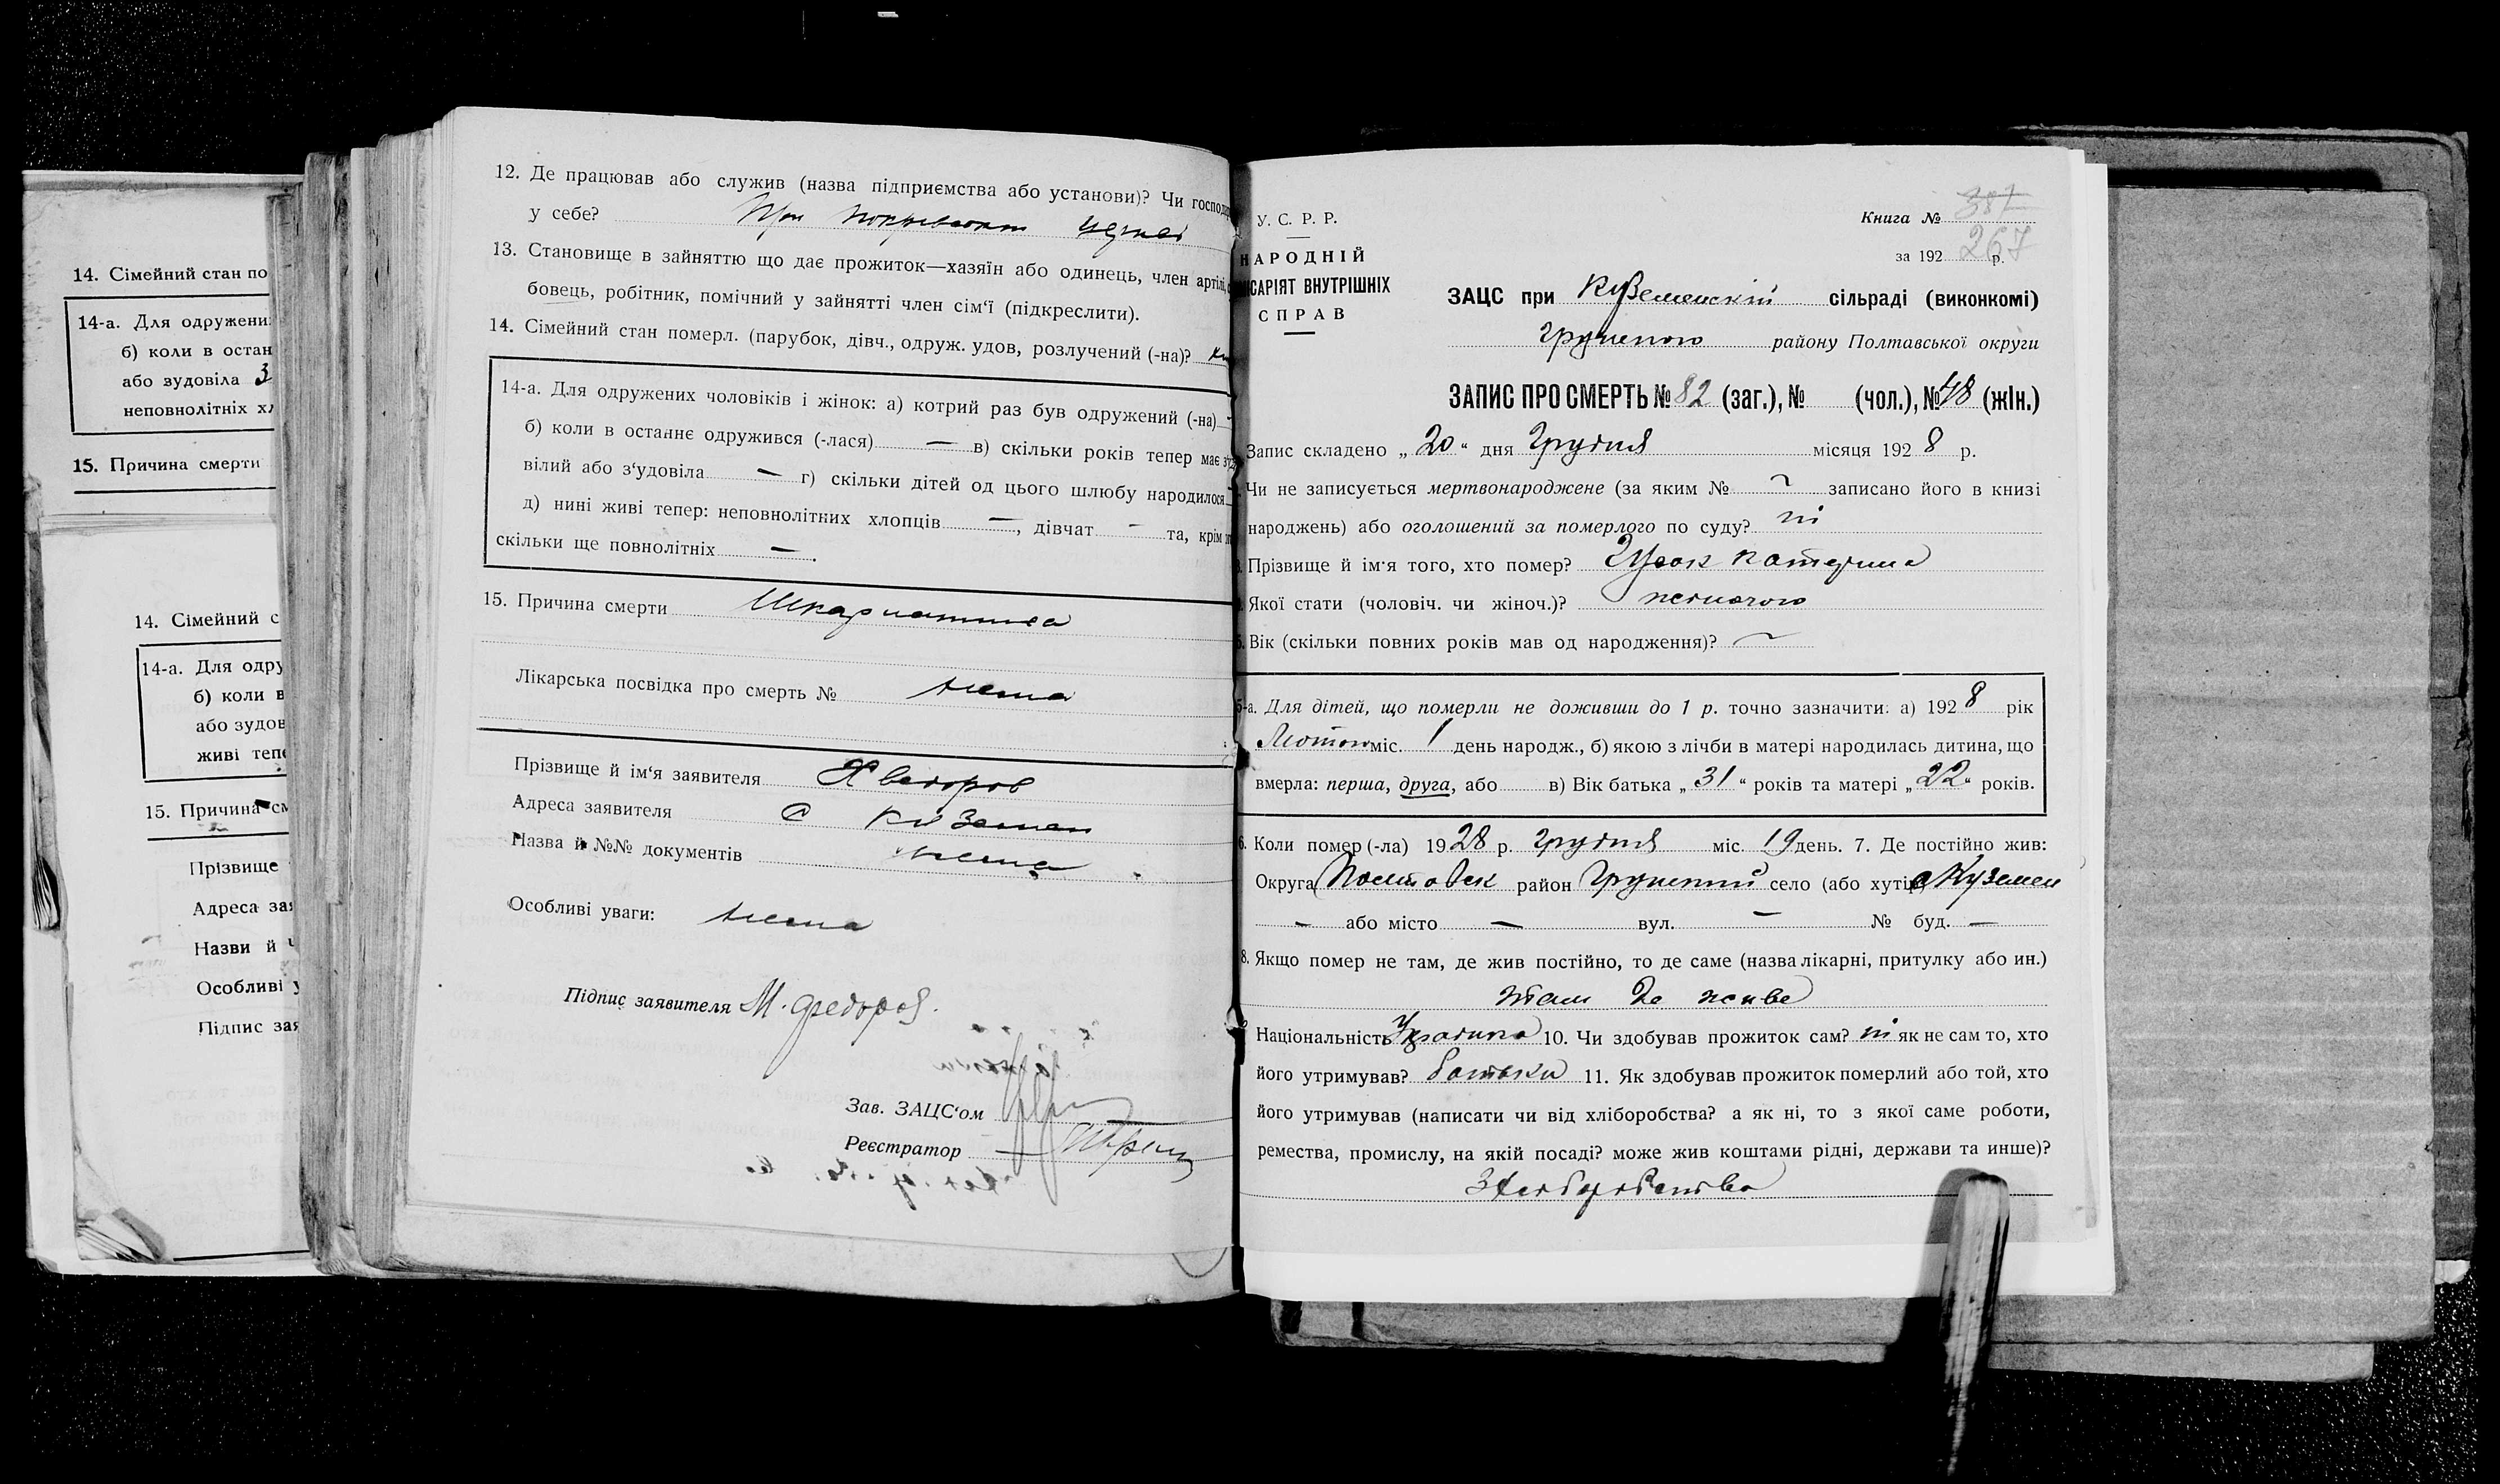 14. Сімейний стан по
14-а. Для одружени
б) коли в остан
або зудовіла З
неповнолітніх х
15. Причина смерти
14. Сімейний с
14-а. Для одру
б) коли в
або зудов
живі тепе
15. Причина см
Прізвище
Адреса за
Назви й
Особливі у
Підпис зая
12. Де працював або служив (назва підприємства або установи)? Чи господа
у себе? При
13. Становище в зайняттю що дає прожиток—хазяїн або одинець, член артілі,
бовець, робітник, помічний у зайнятті член сім'ї (підкреслити).
14. Сімейний стан померл. (парубок, дівч., одруж. удов, розлучений (-на)?
14-а. Для одружених чоловіків і жінок: а) котрий раз був одружений (-на)
б) коли в останнє одружився (-лася) — в) скільки років тепер має з'у
вілий або з'удовіла — г) скільки дітей од цього шлюбу народилося
д) нині живі тепер: неповнолітних хлопців —, дівчат — та, крім
скільки ще повнолітніх —.
15. Причина смерти Шкарлатина
Лікарська посвідка про смерть № нема
Прізвище й ім'я заявителя Хведоров
Адреса заявителя с Куземен
Назва й №№ документів нема
Особливі уваги: нема
Підпис заявителя М. Федоров.
Зав. ЗАЦС'ом
Реєстратор
У. С. Р. Р.
НАРОДНІЙ
САРІЯТ ВНУТРІШНІХ
СПРАВ
Книга № 387
за 192 р. 267
ЗАЦС при Куземенскій сільраді (виконкомі)
Грунського району Полтавської округи
ЗАПИС ПРО СМЕРТЬ № 82 (заг.), № (чол.), № 48 (жін.)
Запис складено „ 20 “ дня Грудня місяця 192 8 р.
Чи не записується мертвонароджене (за яким № ~ записано його в книзі
народжень) або оголошений за померлого по суду? ні
Прізвище й ім'я того, хто помер? Катерина
Якої стати (чоловіч. чи жіноч.)? жіночого
5. Вік (скільки повних років мав од народження)? ~
5-а. Для дітей, що померли не доживши до 1 р. точно зазначити: а) 192 8 рік
Лютого міс. 1 день народж., б) якою з лічби в матері народилась дитина, що
вмерла: перша, друга, або в) Вік батька „ 31 “ років та матері „ 22 “ років.
6. Коли помер (-ла) 19 28 р. грудня міс. 19 день. 7. Де постійно жив:
Округа Полтавск район Грунський село (або хутір) с Куземен
— або місто — вул. — № буд. —
8. Якщо помер не там, де жив постійно, то де саме (назва лікарні, притулку або ин.)
там де живе
Національність Українка 10. Чи здобував прожиток сам? ні як не сам то, хто
його утримував? батьки 11. Як здобував прожиток померлий або той, хто
його утримував (написати чи від хліборобства? а як ні, то з якої саме роботи,
ремества, промислу, на якій посаді? може жив коштами рідні, держави та инше)?
З Хліборобства